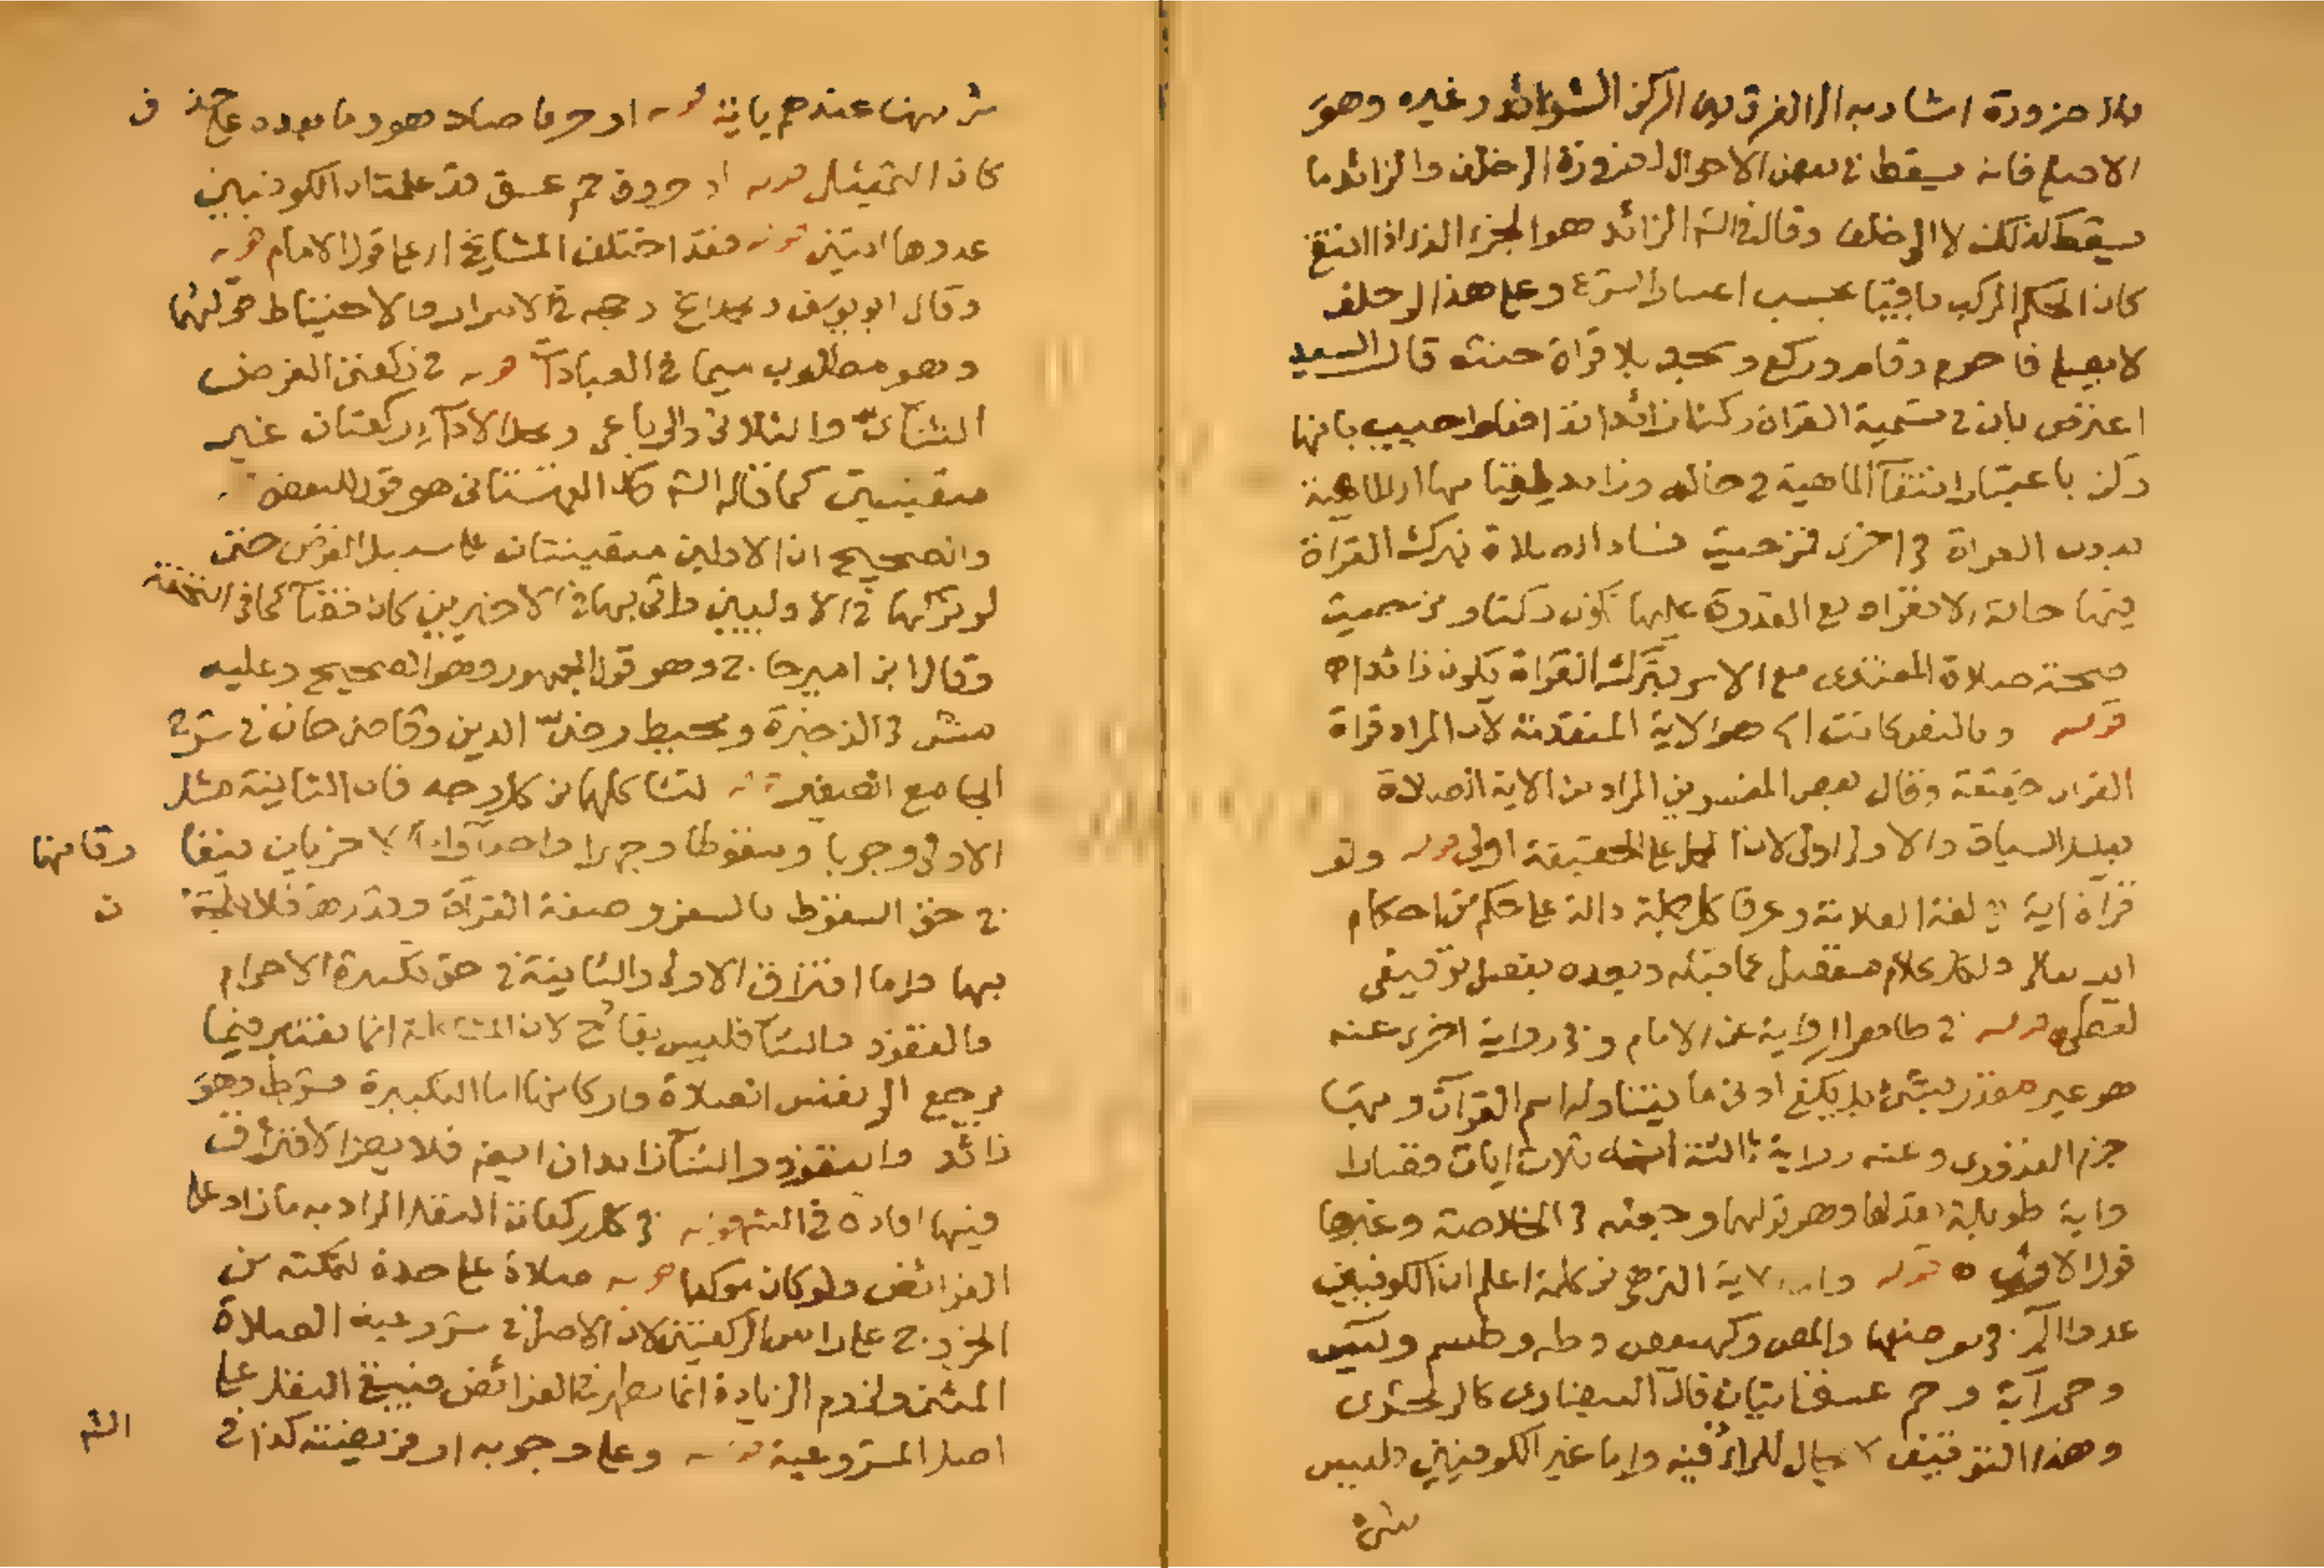 بلا ضرورة اشار به الى الفرق بين الركن الزائد وغيره وهو
الاصلى فانه يسقط في بعض الاحوال لضرورة الى خلف والزائد ما
يسقط كذلك لا الى خلف وقال في الشر الزائد هو الجزء الذى اذا انتفى
كان الحكم المركب باقيا بحسب اعتبار الشرع وعلى هذا لو حلف
لا يصلى فاحرم وقام وركع وسجد بلا قراة حنث قال السعد
اعترض بان في تسمية القران ركنا زائدا تدافعا واجيب بانها
ركن باعتبار انتفاء الماهية في حالة وزايد لقيامها اى الماهية
بدون القراة في اخرى فمن حيث فساد الصلاة بترك القراة
فيها حالة الانفراد مع القدرة عليها تكون ركنا ومن حيث
صحة صلاة المقتدى مع الامر بترك القراة يكون زائدا
قوله وبالنص كانت اى هو الاية المتقدمة لان المراد قراة
القران حقيقة وقال بعض المفسرين المراد من الاية الصلاة
بدليل السياق والاول اولى لان الحمل على الحقيقة اولى قوله ولو
قراة اية لغة العلامة وعرفا كل جملة دالة على حكم من احكام
الله تعالى ولكل كلام منفصل عما قبله وبعده بفصل توقيفى
لفظى قوله في ظاهر الرواية عن الامام وفي رواية اخرى عنه
هو غير مقدر بشئ بل يكفى ادنى ما يتناوله اسم القرآن وبهذا
جزم القدورى وعنه رواية ثالثة ثلاث ايات قصار
واية طويلة تعدلها وهو قولهما ورجحه في الخلاصة وغيرها
قول الاول قوله الاية التى هى كلمة اعلم ان الكوفيين
عدوا الم في مواضعها والمص وكهيعص وطه وطسم ويس
وحم آية وحم عسق ايتان قال البيضاوى كالزمخشرى
وهذا التوقيف لا مجال للراى فيه واما غير الكوفيين فليس
شئ
شئ منها عندهم باية قوله او حرفا صاد هو وما بعده على حذف
كان التمثيل قوله او حروف حم عسق قد علمت ان الكوفيين
عدوها ايتين قوله فقد اختلف المشايخ اى على قول الامام قوله
وقال ابو يوسف ومحمد الخ رجحه في الاسرار والاحتياط قولهما
وهو مطلوب سيما في العبادات قوله في ركعتى الفرض
الثنائى والثلاثى والرباعى ومحل الاداء ركعتان غير
متعينتين كما قاله الشر القهستانى هو قول البعض
والصحيح ان الاوليين متعينتان على سبيل الفرض حتى
لو تركها في الاوليين واتى بها في الاخريين كان قضاء كما في التحفة
وقال ابن امير حاج وهو قول الجمهور وهو الصحيح وعليه
مشى في الذخيرة ومحيط رضى الدين وقاضى خان في شرح
الجامع الصغير قوله لتشاكلهما من كل وجه فان الثانية مثل
الاولى وجوبا وسقوطا وجهرا واخفاء واما الاخريان فيفارقانها
في حق السقوط بالسفر وصفة القراة وقدرها فلا يلحقان
بها واما افتراق الاولى والثانية في حق تكبيرة الاحرام
والتعوذ والثناء فليس بقادح لان المشاكلة انما تعتبر فيما
يرجع الى نفس الصلاة واركانها اما التكبيرة فشرط وهو
زائد والتعوذ والثناء زايدان ايضا فلا يضر الافتراق
فيها افاده في الشر قوله في كل ركعات النفل المراد به ما زاد على
الفرائض ولو كان مؤكدا قوله صلاة على حدة لتمكنه من
الخروج على راس الركعتين لان الاصل في شروعية الصلاة
المثنى ولزوم الزيادة انما يظهر في الفرائض فيبقى النفل على
اصل المشروعية قوله وعلى وجوبه او فرضيته كذا في الشر